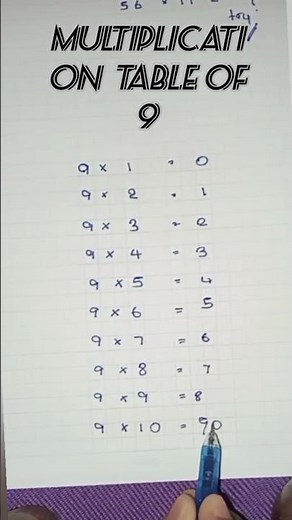 56 × 11 = ?
try
MULTIPLICATI
ON TABLE OF
9
9 × 1 = 0
9 × 2 = 1
9 × 3 = 2
9 × 4 = 3
9 × 5 = 4
9 × 6 = 5
9 × 7 = 6
9 × 8 = 7
9 × 9 = 8
9 × 10 = 90